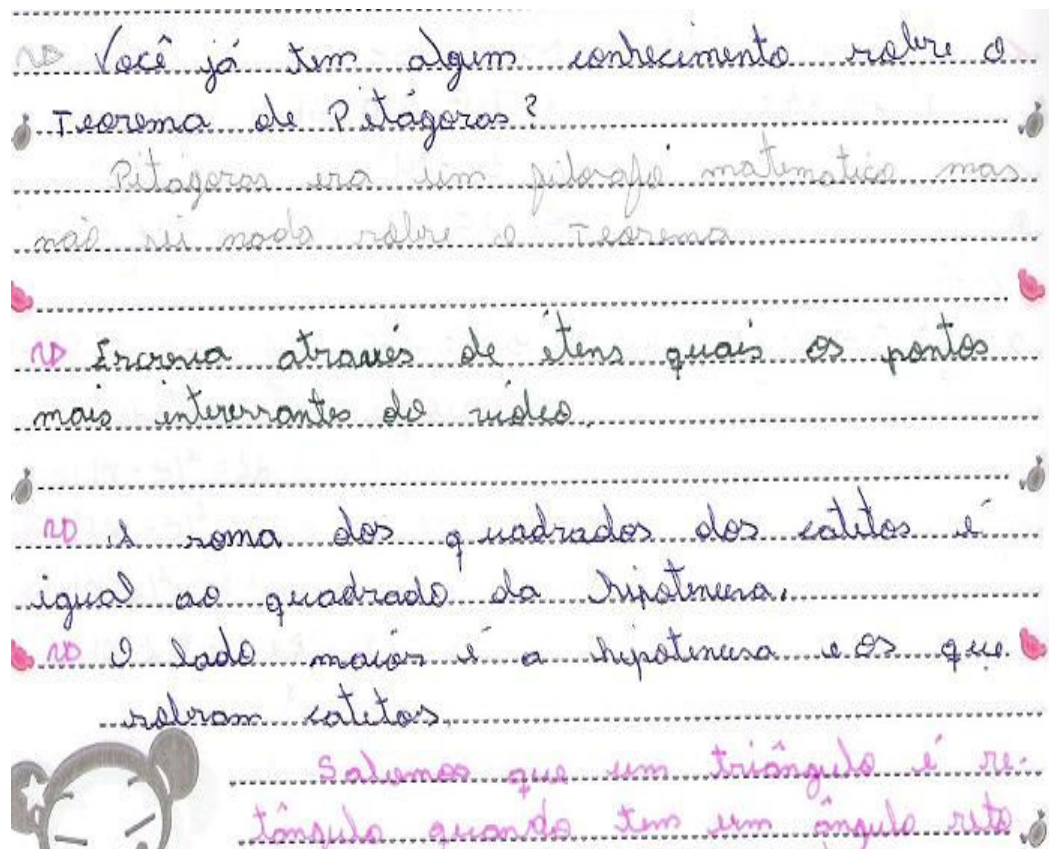 Você já tem algum conhecimento sobre o
Teorema de Pitágoras?
Pitagoras era um filosofo matematico mas
não sei nada sobre o Teorema
Escreva através de ítens quais os pontos
mais interessantes do vídeo.
A soma dos quadrados dos catetos é
igual ao quadrado da hipotenusa.
O lado maior é a hipotenusa e os que
sobram catetos.
Sabemos que um triângulo é re-
tângulo quando tem um ângulo reto